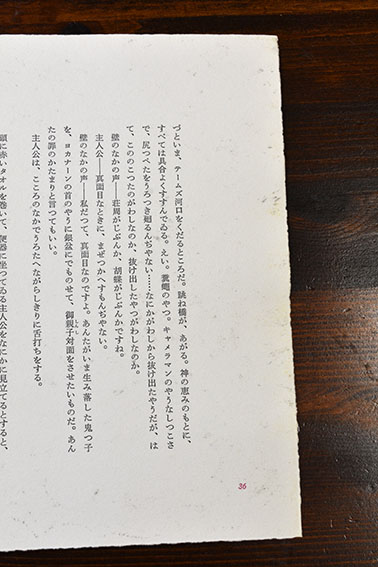 づといま、テームズ河口をくだるところだ。跳ね橋が、あがる。神の恵みのもとに、
すべては具合よくすすんでゐる。えい。糞蠅のやつ。キャメラマンのやうなしつこさ
で、尻つぺたをうろつき廻るんぢやない……なにかがわしから抜け出たやうだが、は
て、こののこつたのがわしなのか、抜け出したやつがわしなのか。
壁のなかの声――荘周がじぶんか、胡蝶がじぶんかですね。
主人公――真面目なときに、まぜつかへすもんぢやない。
壁のなかの声――私だつて、真面目なのですよ。あんたがいま生み落した鬼つ子
を、ヨカナーンの首のやうに銀盆にでものせて、御親子対面をさせたいものだ。あん
たの罪のかたまりと言つてもいい。
主人公は、こころのなかでうろたへながらしきりに舌打ちをする。
頭に赤いタオルを巻いて、便器に坐つてゐる主人公をなにかに見立てるとすると、
36